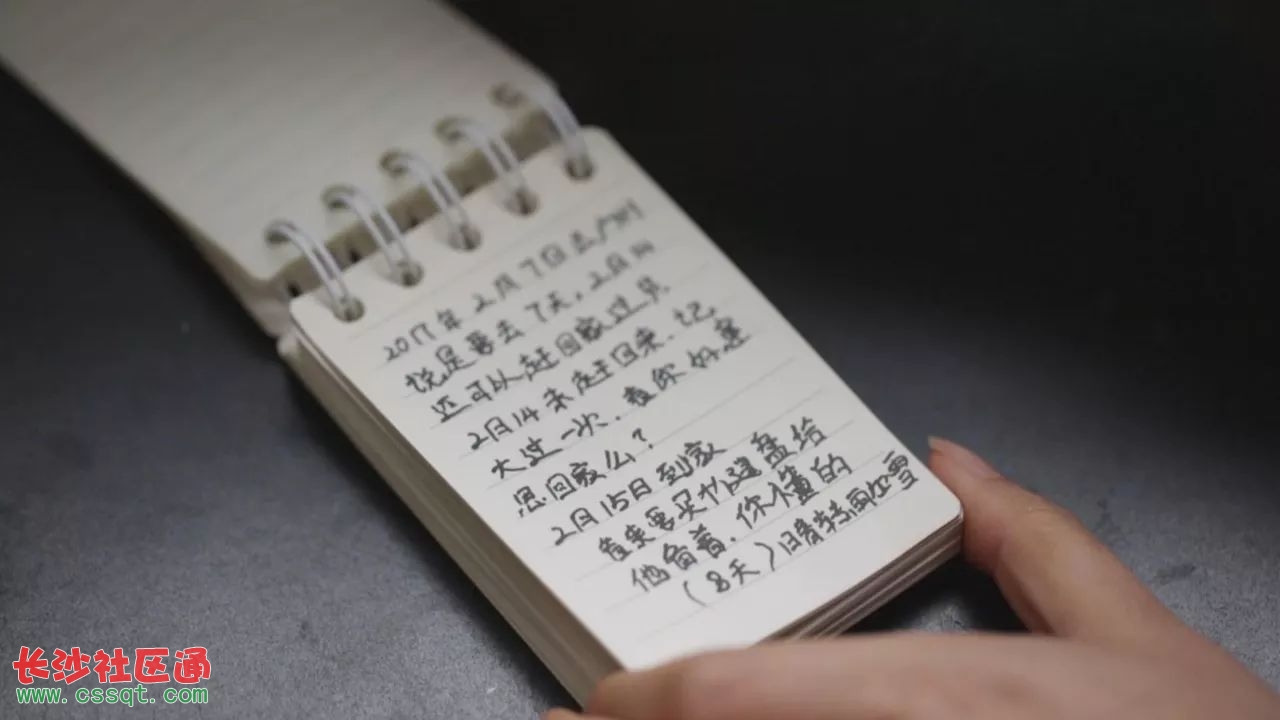 2017年2月7日去广州
说是要去7天，2月14
还可以赶回家过节
2月14未赶回来.记
大过一次.看你好意
思回家么？
2月15日到家
看来要买个键盘给
他备着.你懂的
(8天)晴转雨加雪
长沙社区通
www.cssqt.com